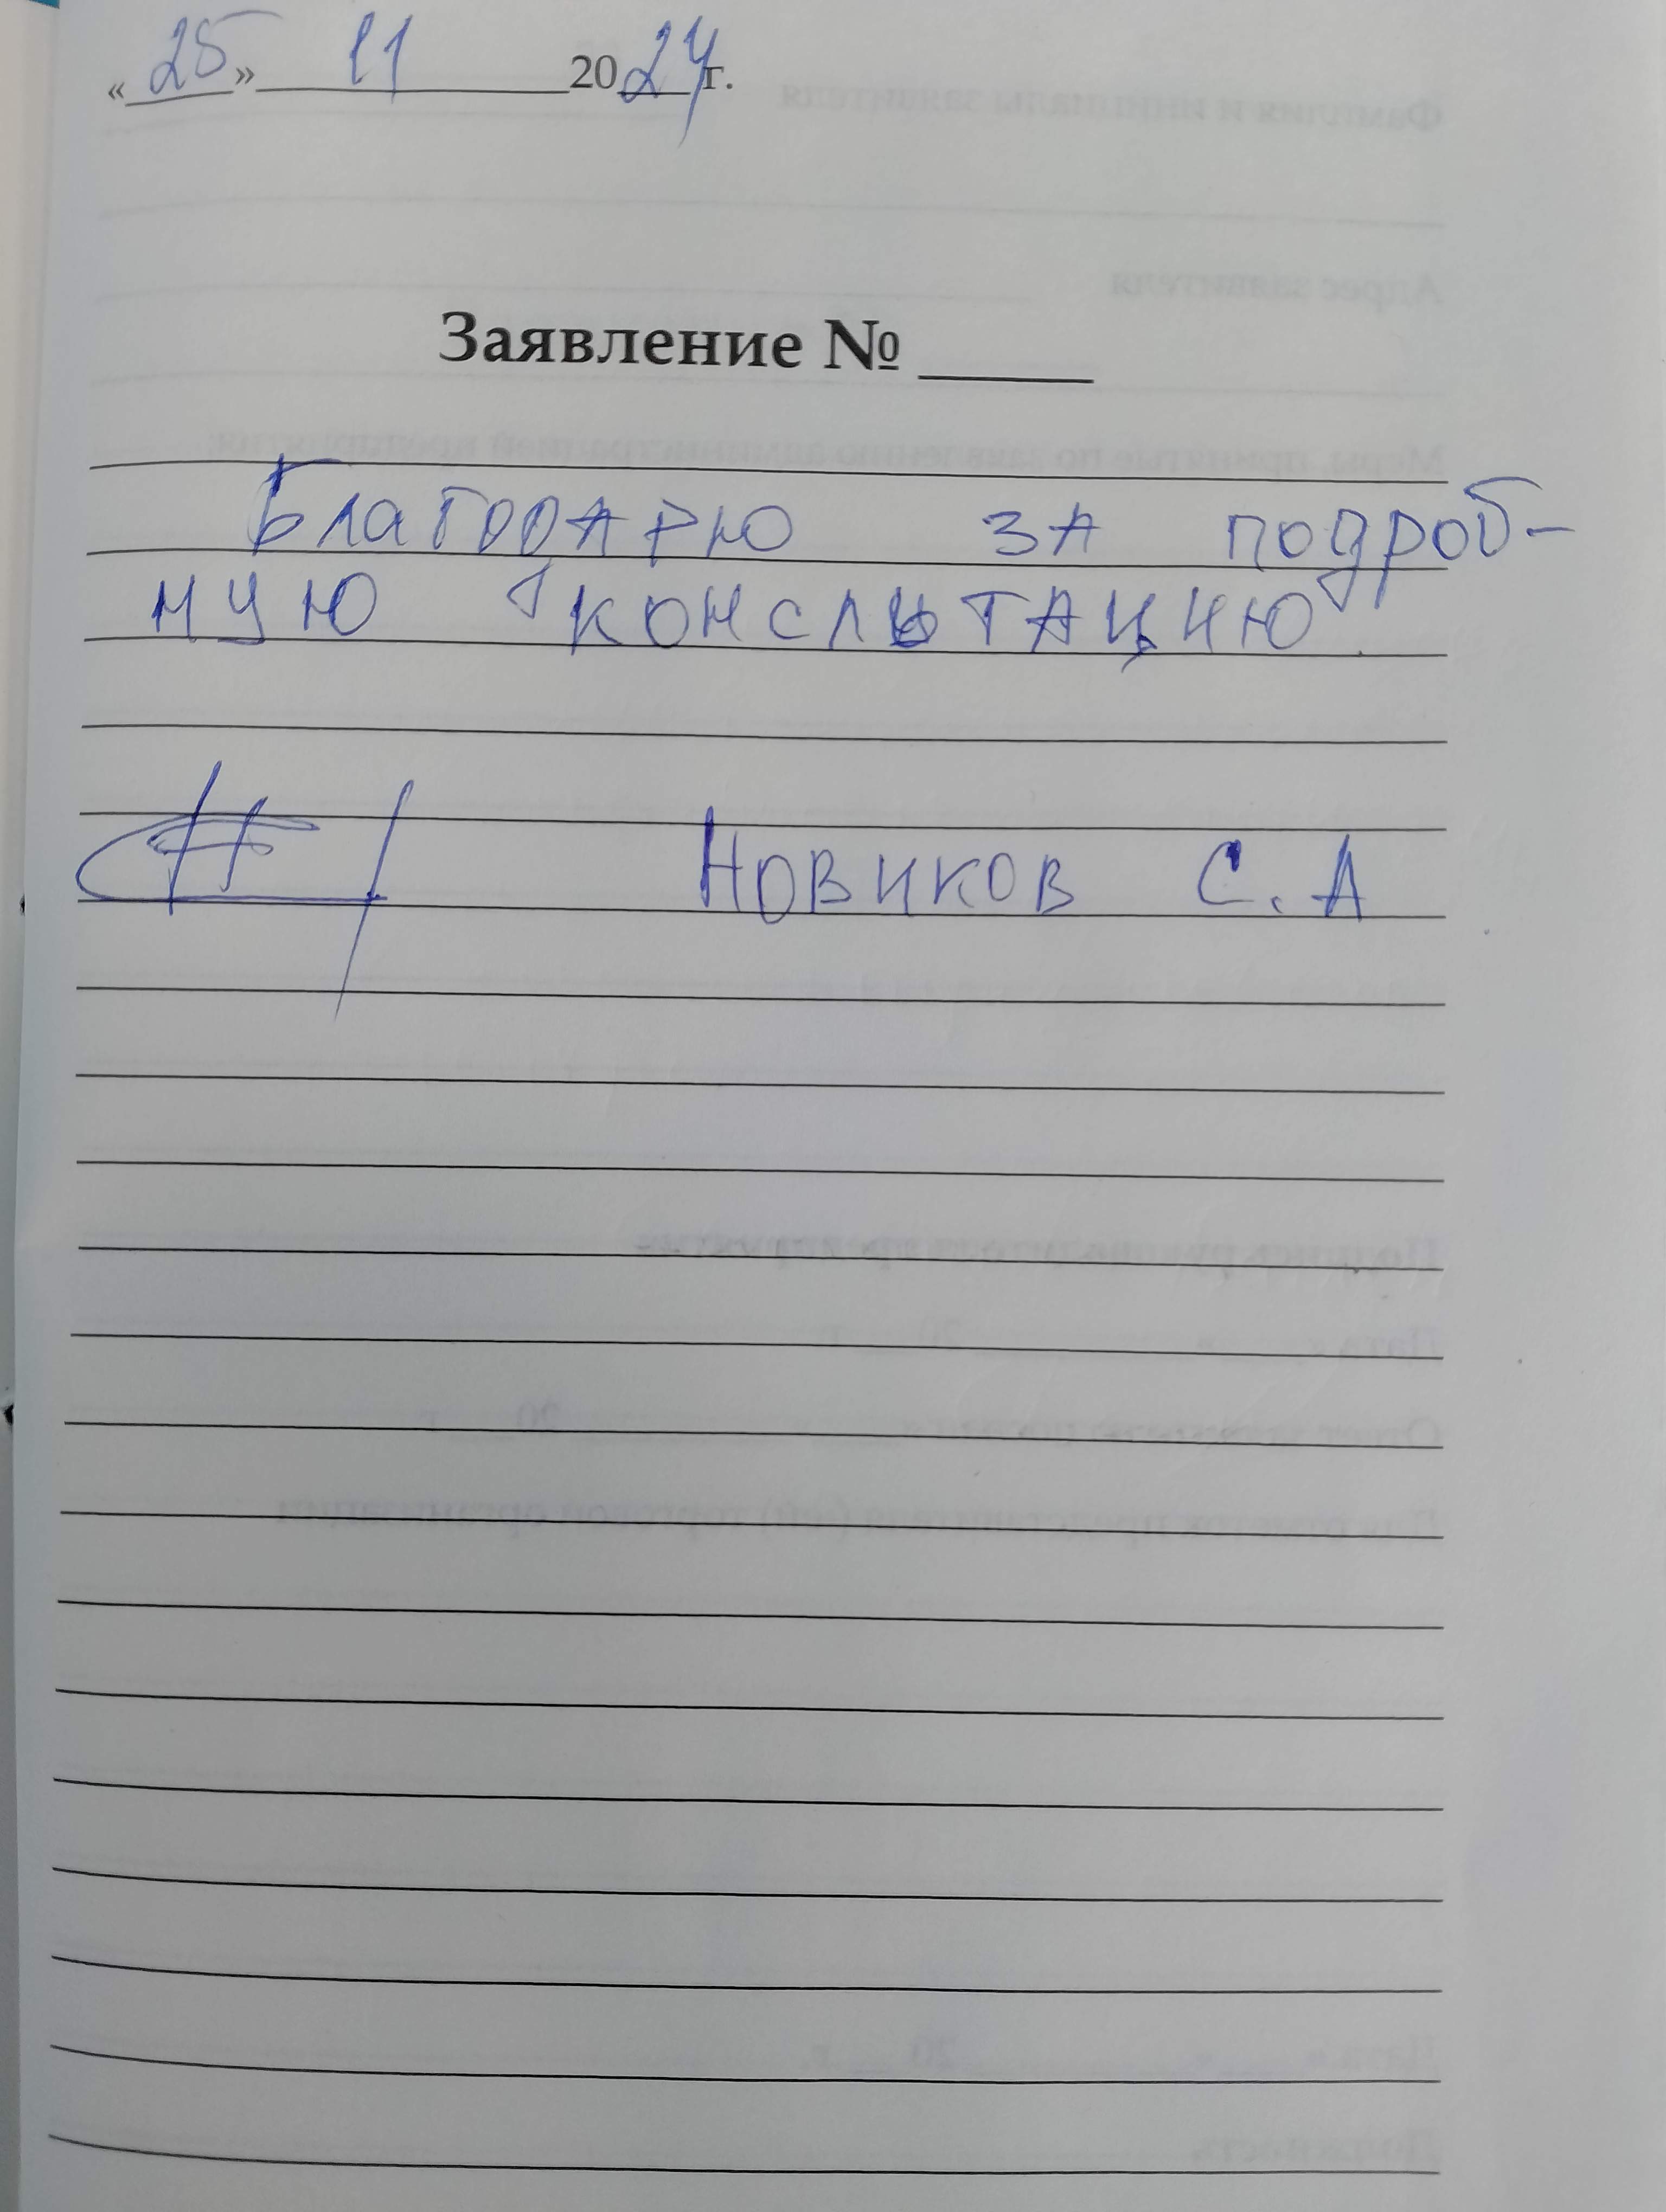 «25» 11 2024г.
Заявление № ____
Благодарю за подроб-
ную "консльтацию".
Новиков С.А